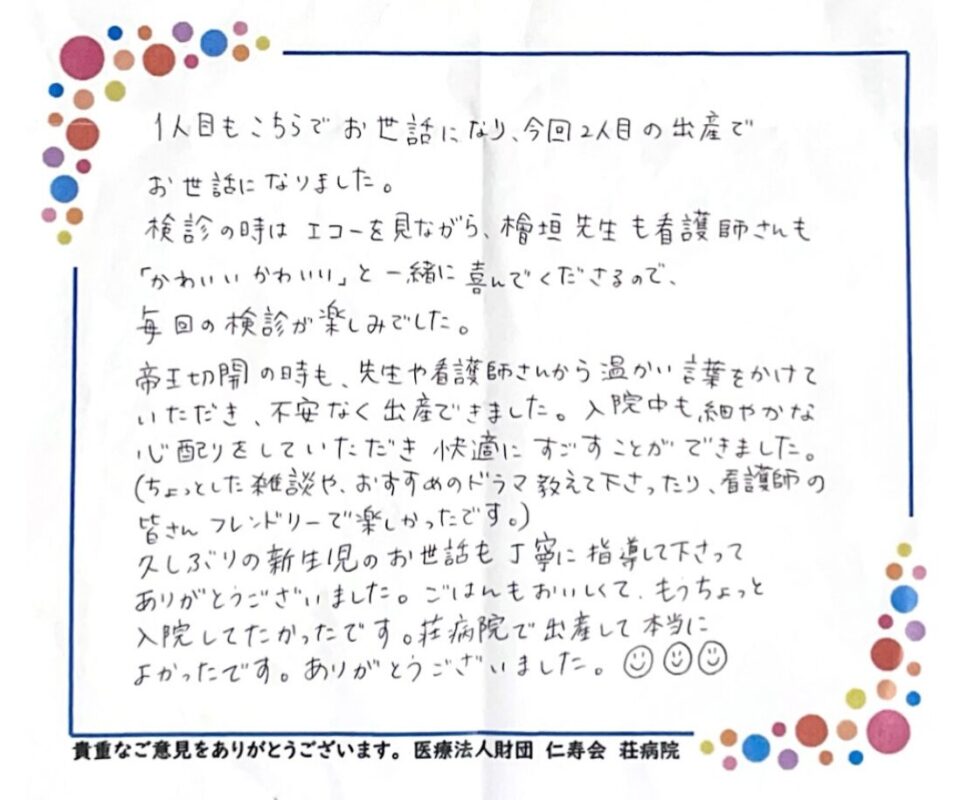 1人目もこちらでお世話になり、今回2人目の出産で
お世話になりました。
検診の時はエコーを見ながら、檜垣先生も看護師さんも
「かわいいかわいい」と一緒に喜んでくださるので、
毎回の検診が楽しみでした。
帝王切開の時も、先生や看護師さんから温かい言葉をかけて
いただき、不安なく出産できました。入院中も細やかな
心配りをしていただき快適にすごすことができました。
(ちょっとした雑談や、おすすめのドラマ教えて下さったり、看護師の
皆さんフレンドリーで楽しかったです。)
久しぶりの新生児のお世話も丁寧に指導して下さって
ありがとうございました。ごはんもおいしくて、もうちょっと
入院してたかったです。荘病院で出産して本当に
よかったです。ありがとうございました。
貴重なご意見をありがとうございます。医療法人財団 仁寿会 荘病院